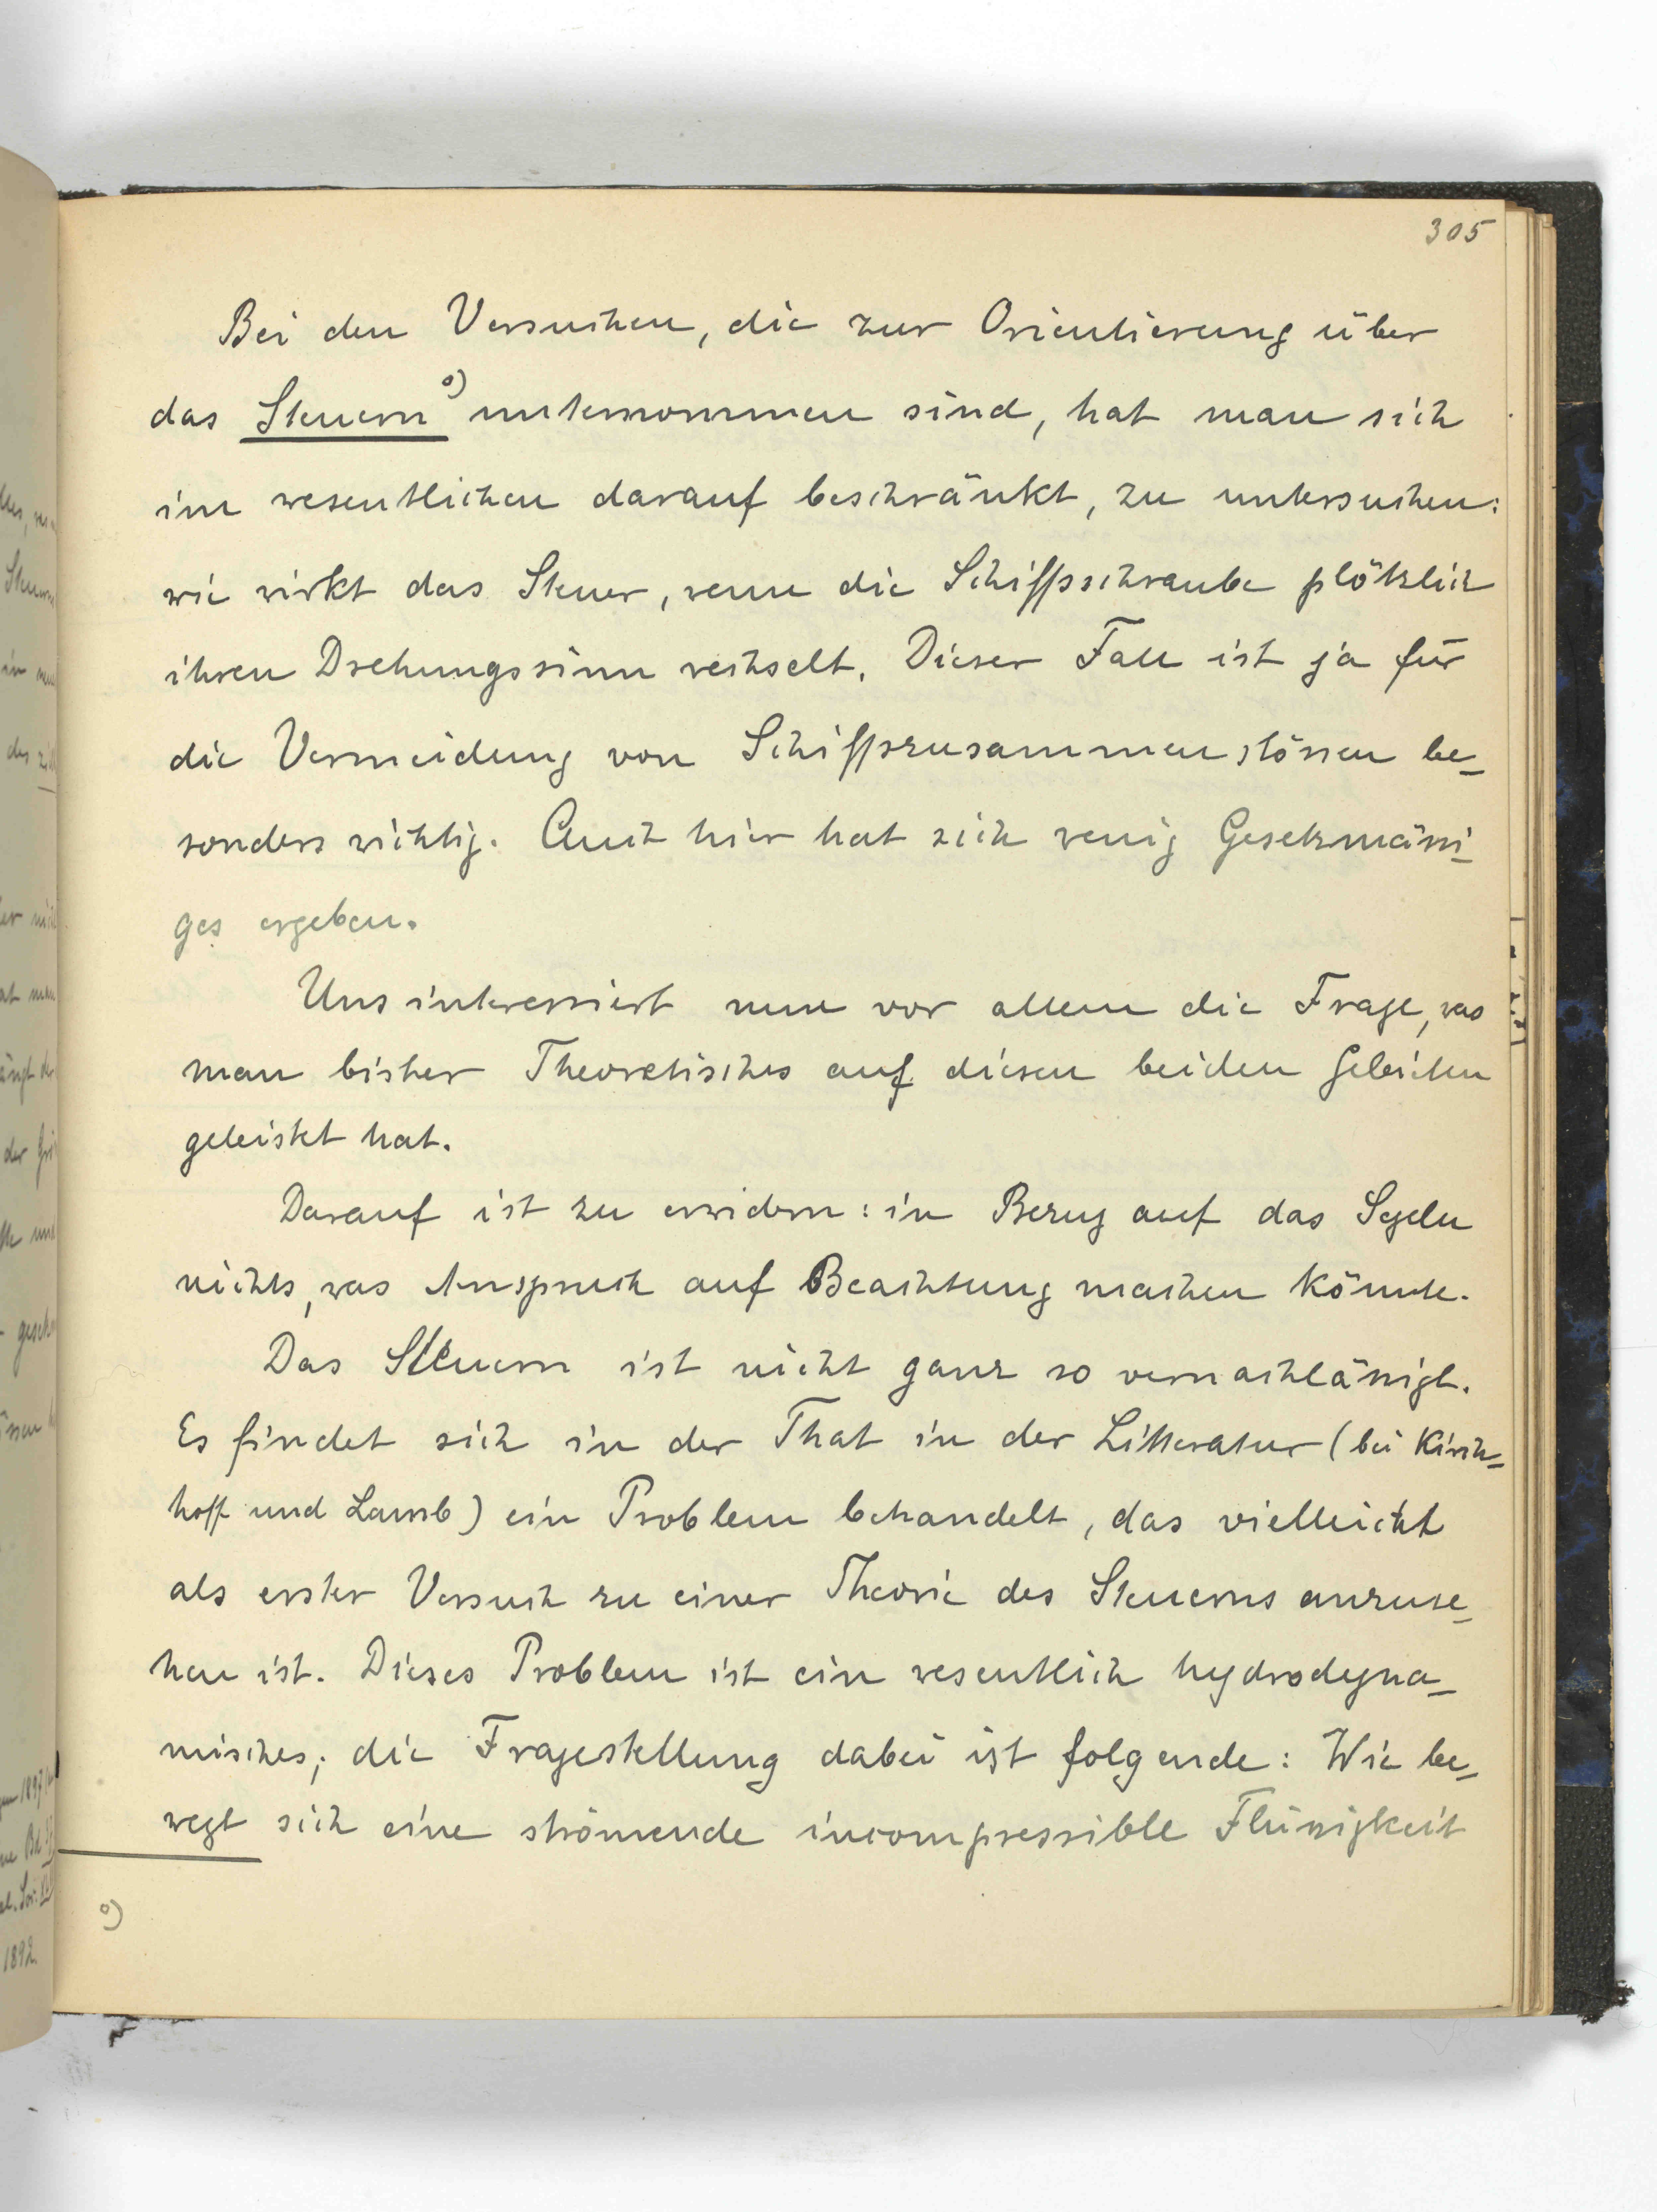 305
Bei den Versuchen, die zur Orientierung über
das Steuern °) unternommen sind, hat man sich
im wesentlichen darauf beschränkt, zu untersuchen:
wie wirkt das Steuer, wenn die Schiffsschraube plötzlich
ihren Drehungssinn wechselt. Dieser Fall ist ja für
die Vermeidung von Schiffszusammenstössen be-
sonders wichtig. Auch hier hat sich wenig Gesetzmässi-
ges ergeben.
Uns interessiert nun vor allem die Frage, was
man bisher Theoretisches auf diesen beiden Gebieten
geleistet hat.
Darauf ist zu erwidern: in Bezug auf das Segeln
nichts, was Anspruch auf Beachtung machen könnte.
Das Steuern ist nicht ganz so vernachlässigt.
Es findet sich in der That in der Litteratur (bei Kirch-
hoff und Lamb) ein Problem behandelt, das vielleicht
als erster Versuch zu einer Theorie des Steuerns anzuse-
hen ist. Dieses Problem ist ein wesentlich hydrodyna-
misches; die Fragestellung dabei ist folgende: Wie be-
wegt sich eine strömende incompressible Flüssigkeit
°)